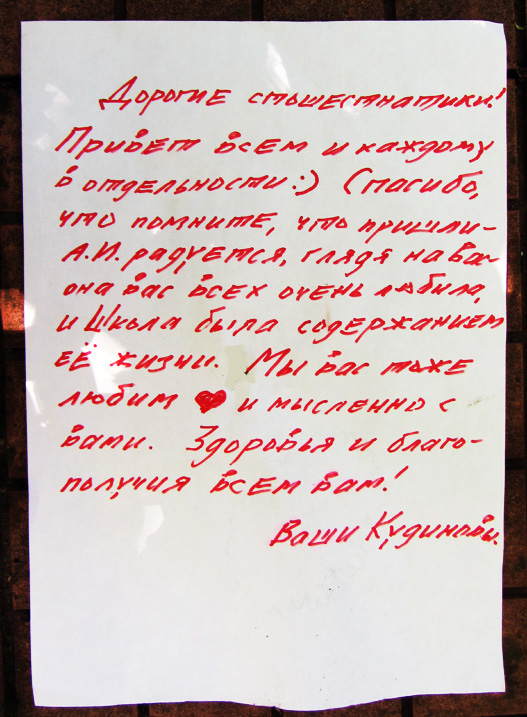 Дорогие стошестнатики!
Привет всем и каждому
в отдельности :) Спасибо,
что помните, что пришли –
А.И. радуется, глядя на вас –
она вас всех очень любила,
и Школа была содержанием
её жизни. Мы вас тоже
любим ♥ и мысленно с
вами. Здоровья и благо-
получия всем вам!
Ваши Кудиновы.